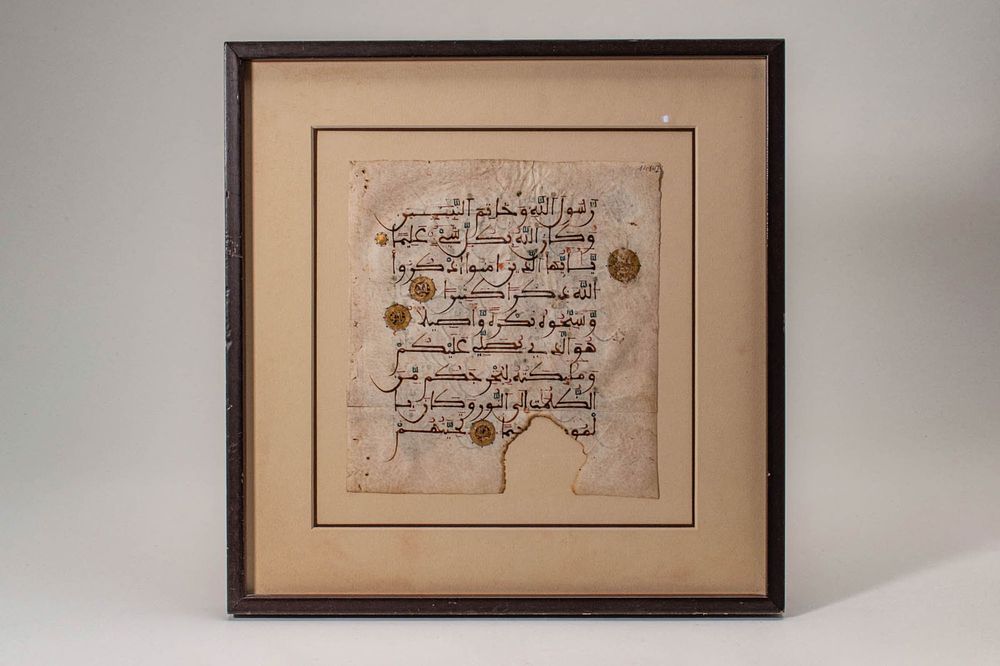 رسول الله وخاتم النبيين
وكان الله بكل شيء عليما
يأيها الذين امنوا اذكروا
الله ذكرا كثيرا
وسبحوه بكرة واصيلا
هو الذي يصلي عليكم
ومليكته ليخرجكم من
الظلمت الى النور وكان با
لمو حيما تحيتهم